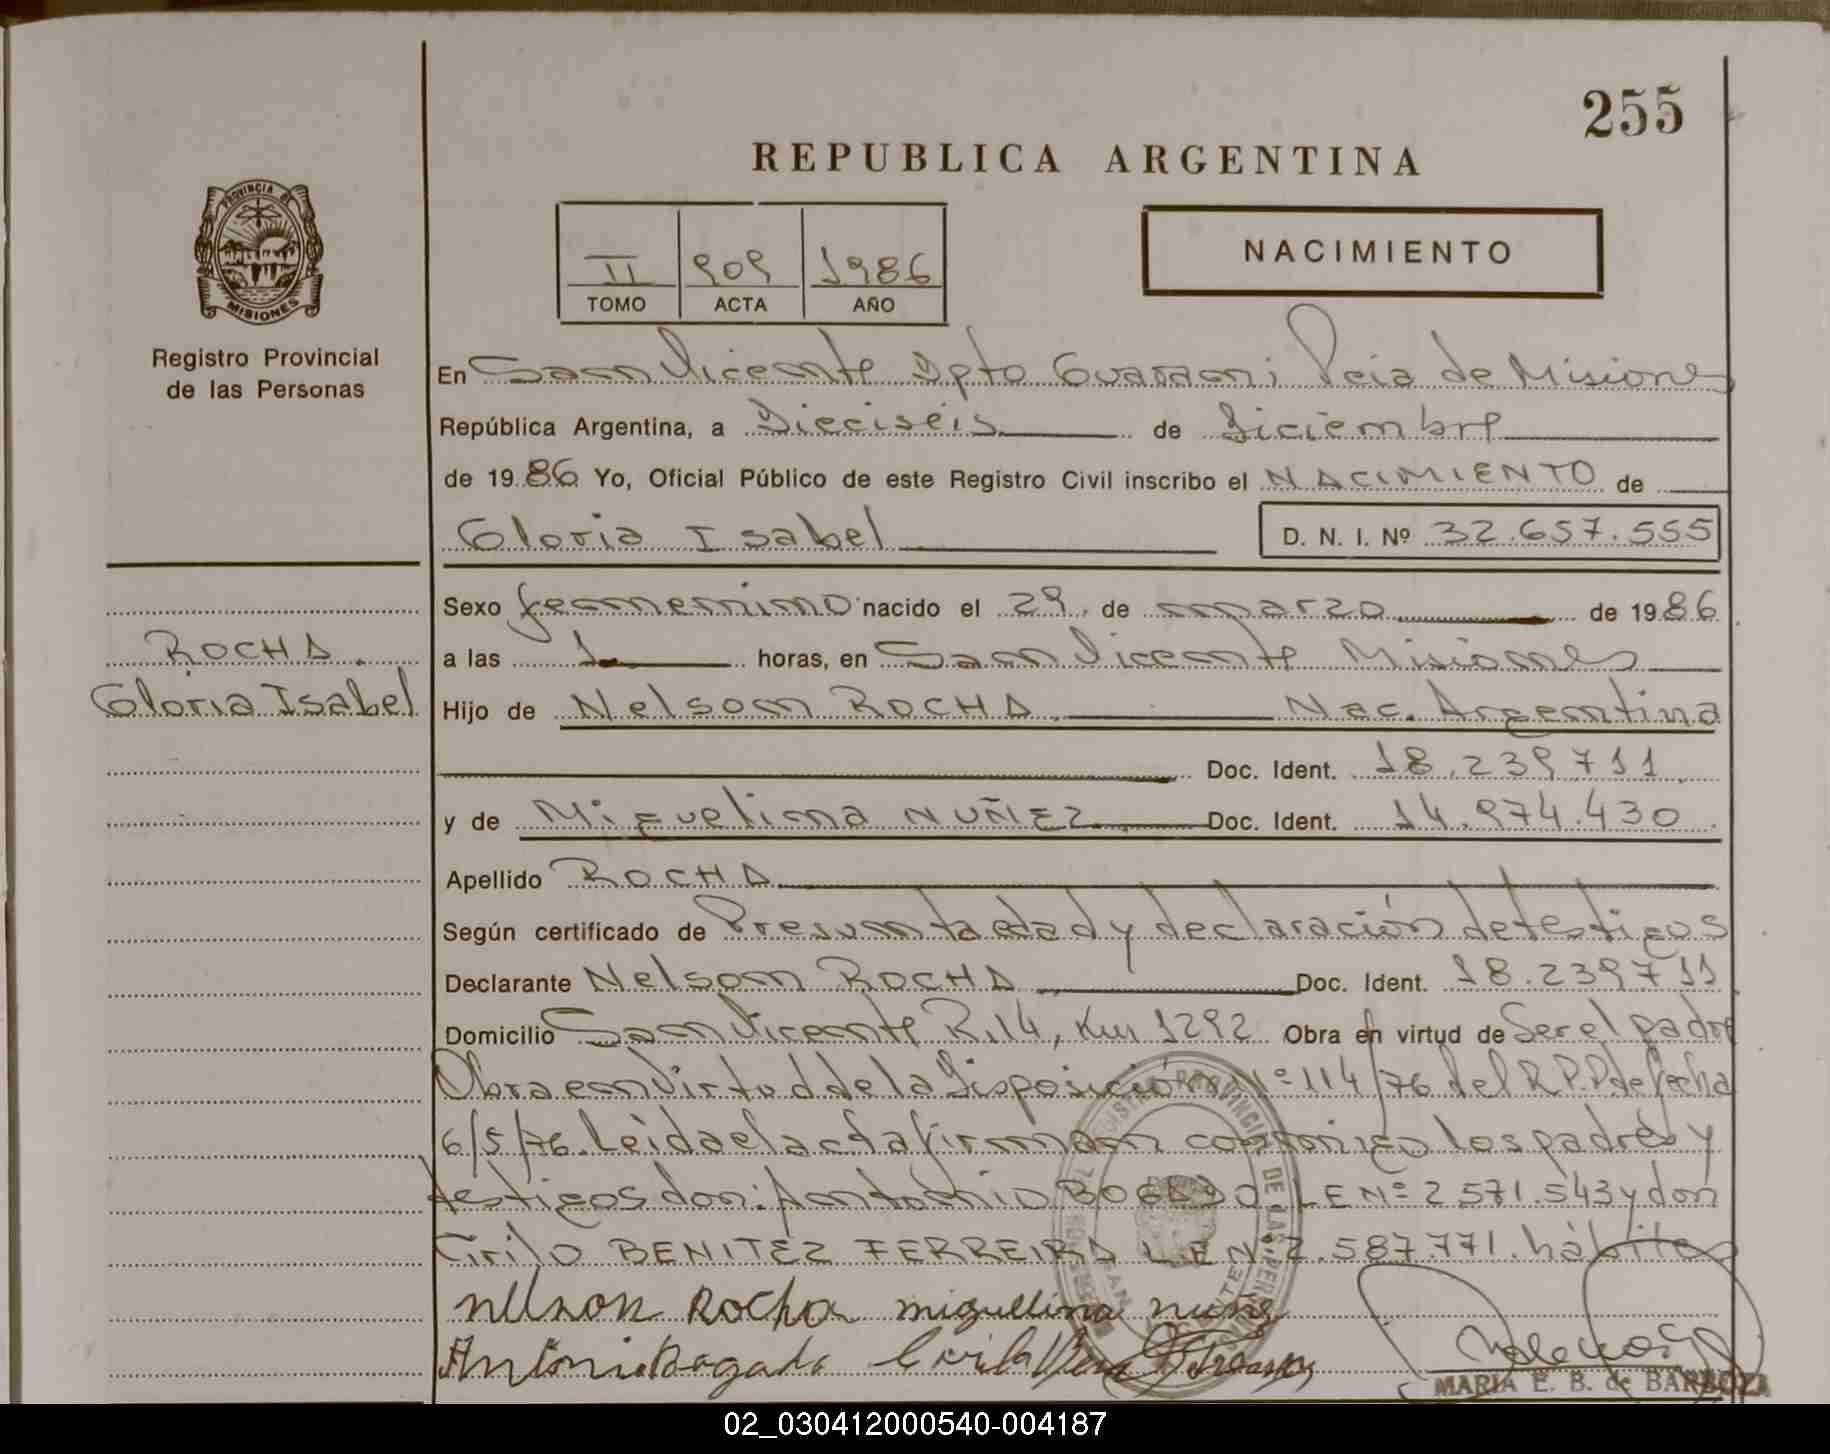 255
REPUBLICA ARGENTINA
PROVINCIA DE
MISIONES
Registro Provincial
de las Personas
II 909 1986
TOMO ACTA AÑO
NACIMIENTO
En San Vicente Dpto Guarani Pcia de Misiones
República Argentina, a Dieciséis de Diciembre
de 1986 Yo, Oficial Público de este Registro Civil inscribo el NACIMIENTO de
Gloria Isabel D. N. I. Nº 32.657.555
Sexo femenino nacido el 29 de marzo de 1986
ROCHA
a las 1 horas, en San Vicente Misiones
Gloria Isabel
Hijo de Nelson ROCHA Nac. Argentina
Doc. Ident. 18.239711
y de Miguelina NUÑEZ Doc. Ident. 14.974.430
Apellido ROCHA
Según certificado de Presunta edad y declaración de testigos
Declarante Nelson ROCHA Doc. Ident. 18.239711
Domicilio San Vicente R.14, Km 1292 Obra en virtud de Ser el padre
Obra en virtud de la Disposición Nº 114/76 del R.P.P de fecha
6/5/76. Leida el acta firman conmigo los padres y
testigos don: Antonio BOGADO LE Nº 2571.543 y don
Cirilo BENITEZ FERREIRA L.E.N 2.587.771. hábiles
nelson Rocha miguelina nuñe
Antonio Bogado
MARIA E. B. de BARBOZA
02_030412000540-004187